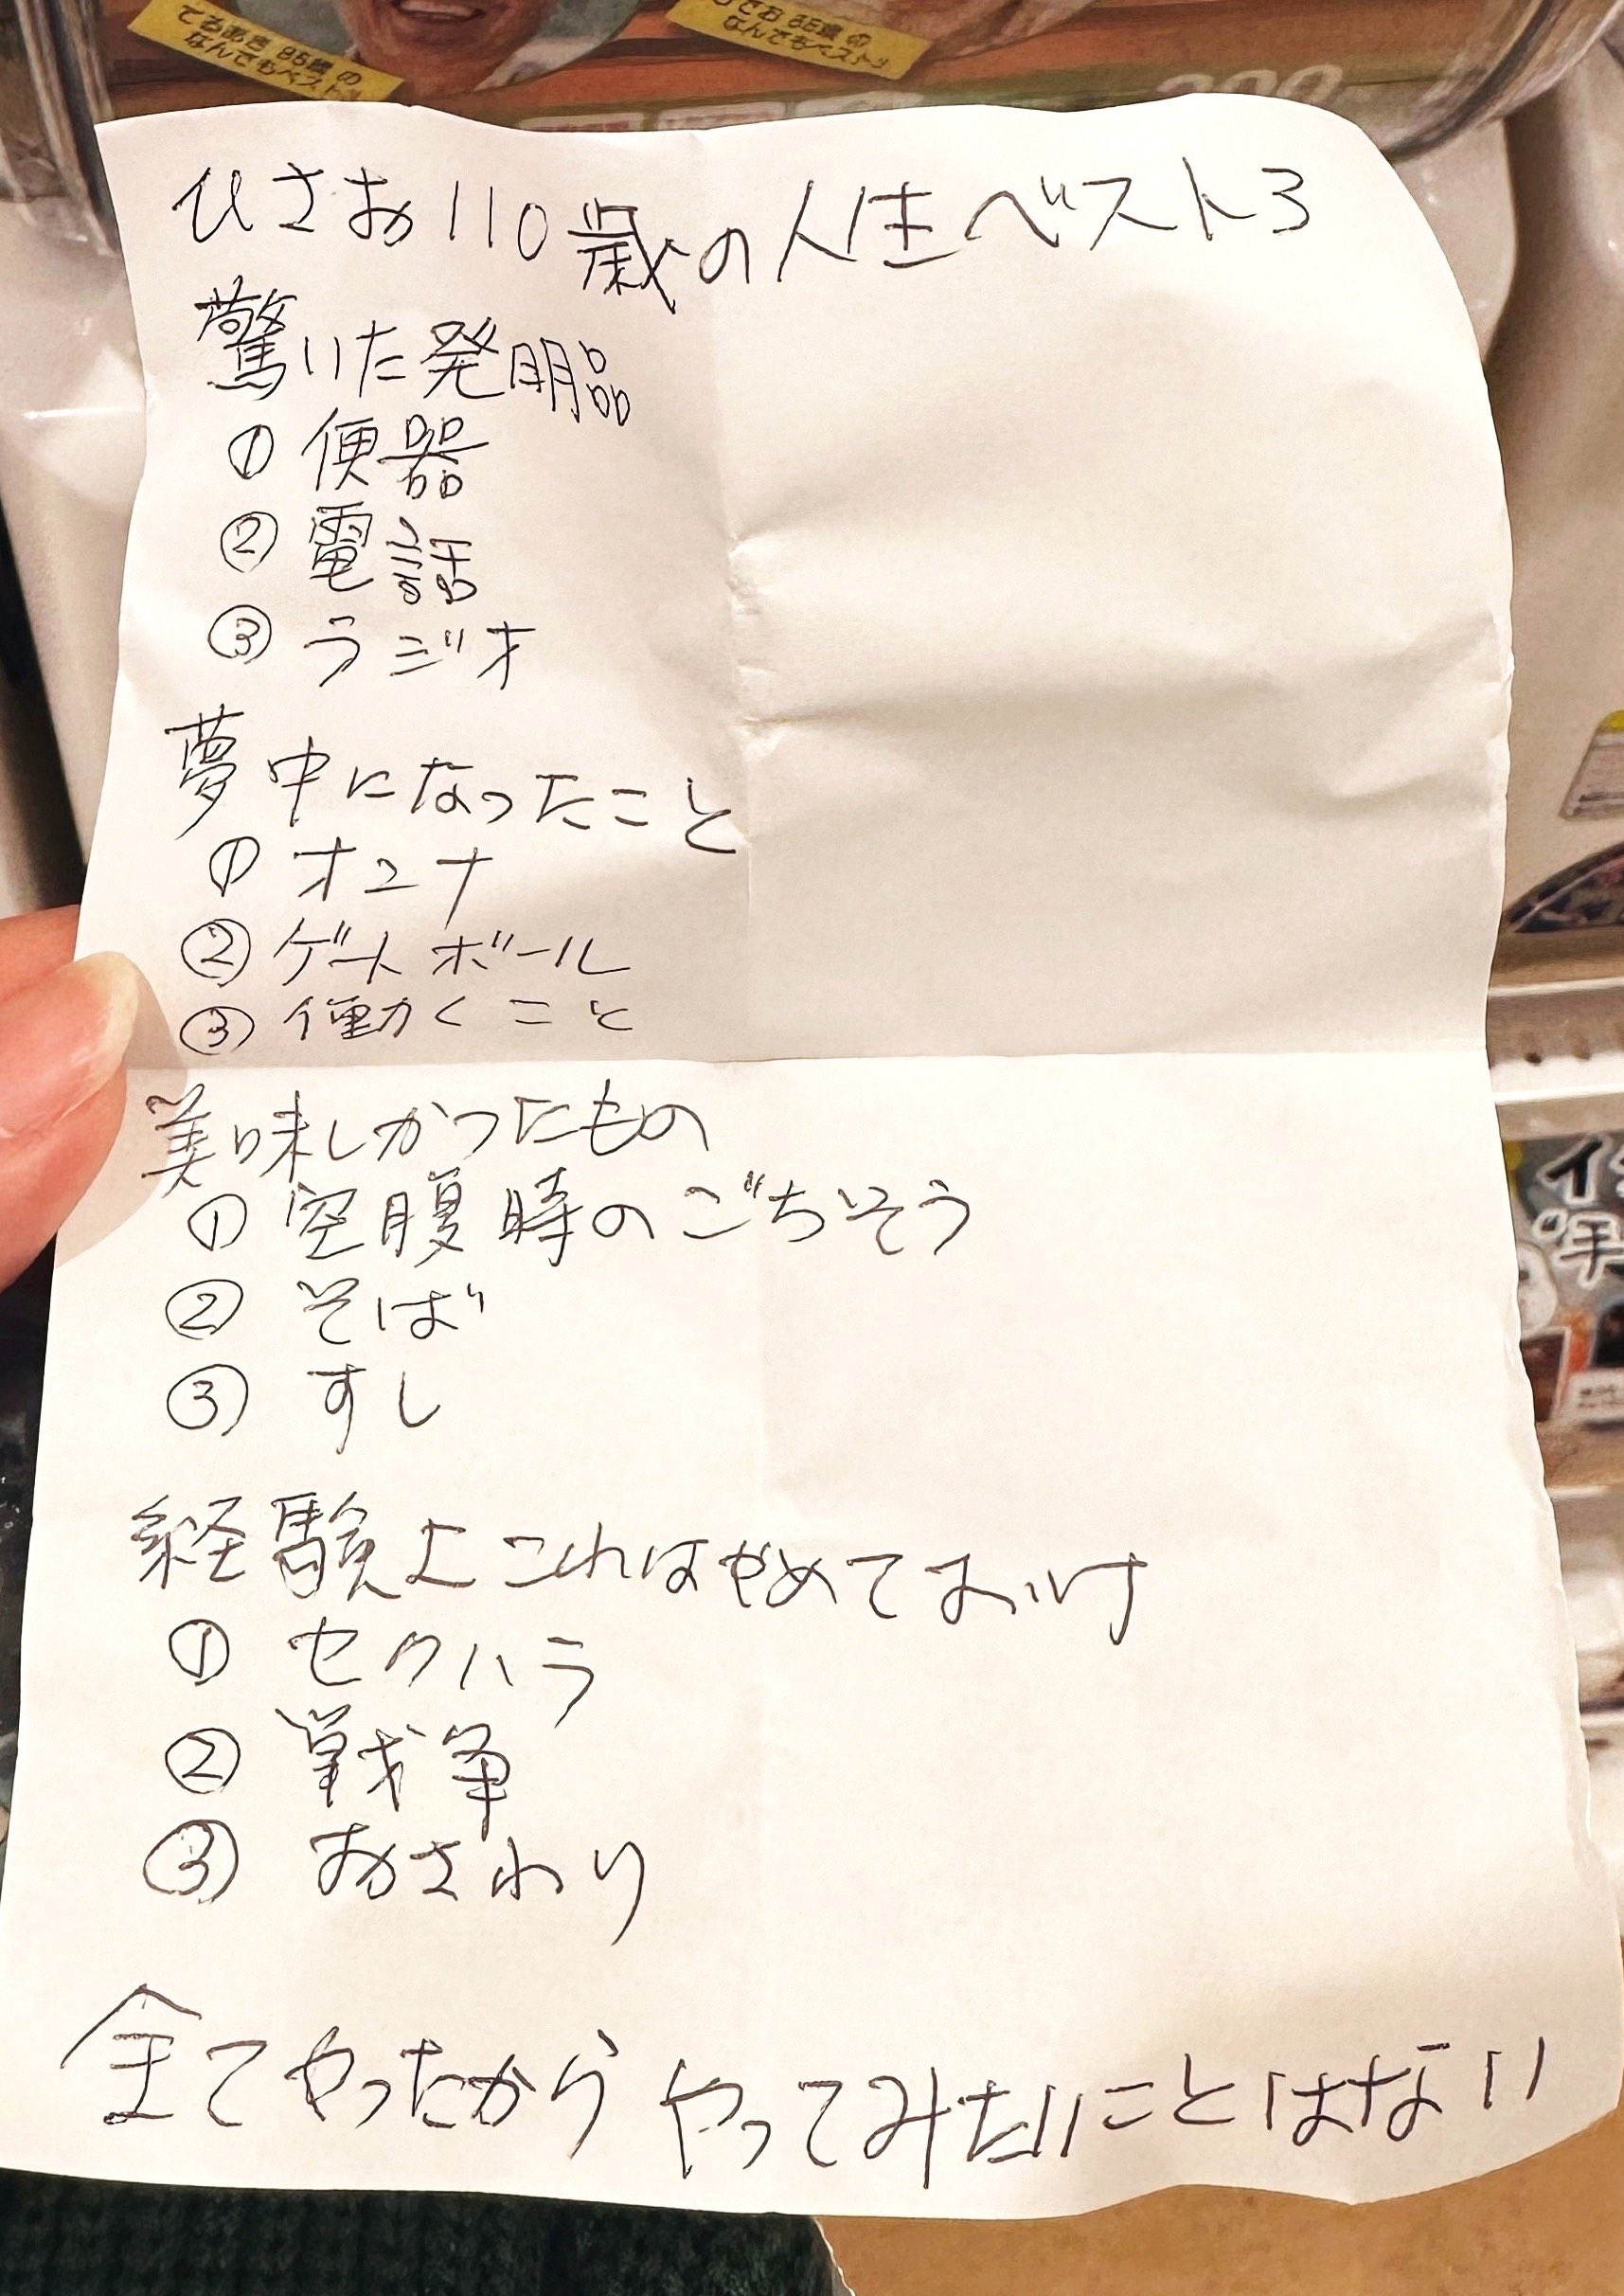 てるあき 85歳の
なんでもベスト3
なんでもベスト3
ひさお110歳の人生ベスト3
驚いた発明品
① 便器
② 電話
③ ラジオ
夢中になったこと
① オンナ
② ゲートボール
③ 働くこと
美味しかったもの
① 空腹時のごちそう
② そば
③ すし
経験上これはやめておけ
① セクハラ
② 戦争
③ おさわり
全てやったから やってみたいことはない